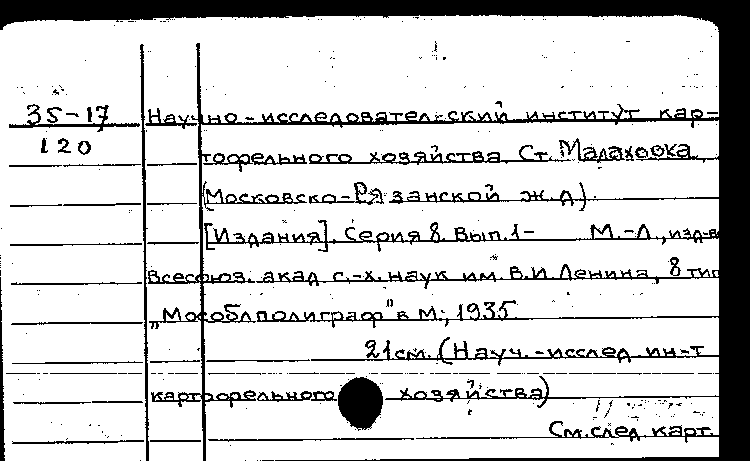 35-17 Научно-исследовательский институт кар-
120 тофельного хозяйства. Ст. Малаховка
(Московско-Рязанской ж.д.).
[Издания]. Серия 8. Вып.1- М.-Л., изд-в
Всесоюз. акад. с.-х. наук им. В.И Ленина, 8 тип
„Мособлполиграф" в М., 1935
21см. (Науч.-исслед. ин-т
картофельного хозяйства)
См. след. карт.